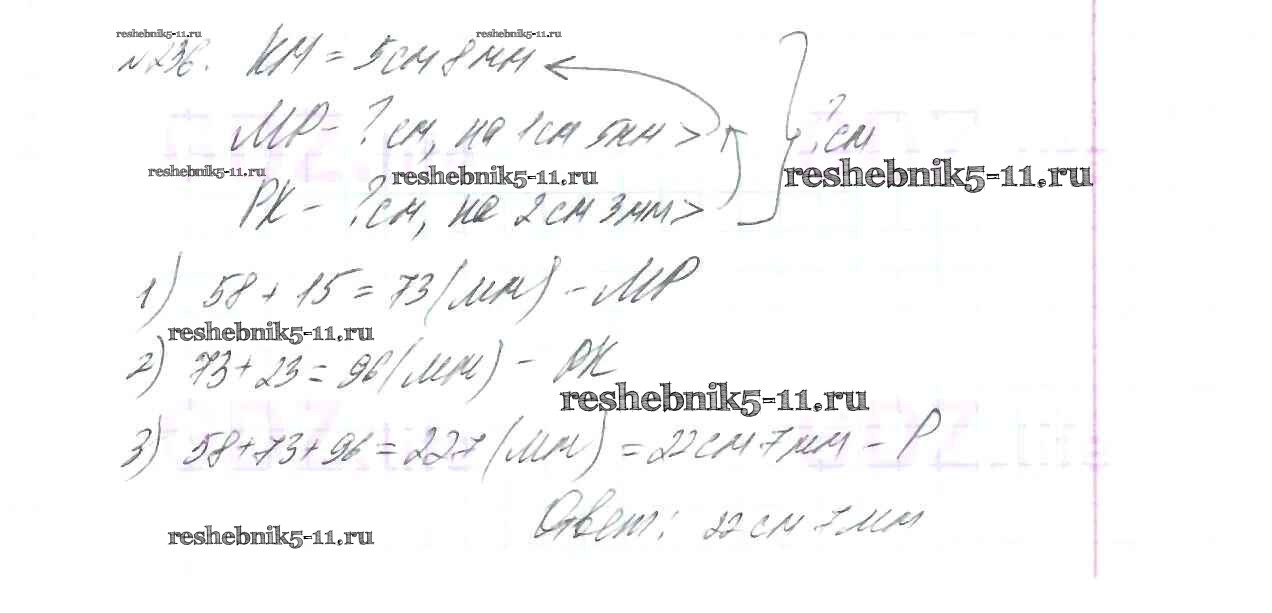 reshebnik5-11.ru reshebnik5-11.ru
№236. КМ = 5см 8мм
МР - ? см, на 1см 5мм > ? см
reshebnik5-11.ru reshebnik5-11.ru reshebnik5-11.ru
РК - ? см, на 2см 3мм >
1) 58 + 15 = 73 (мм) - МР
reshebnik5-11.ru
2) 73 + 23 = 96 (мм) - РК
reshebnik5-11.ru
3) 58 + 73 + 96 = 227 (мм) = 22см 7мм - Р
Ответ: 22см 7мм
reshebnik5-11.ru